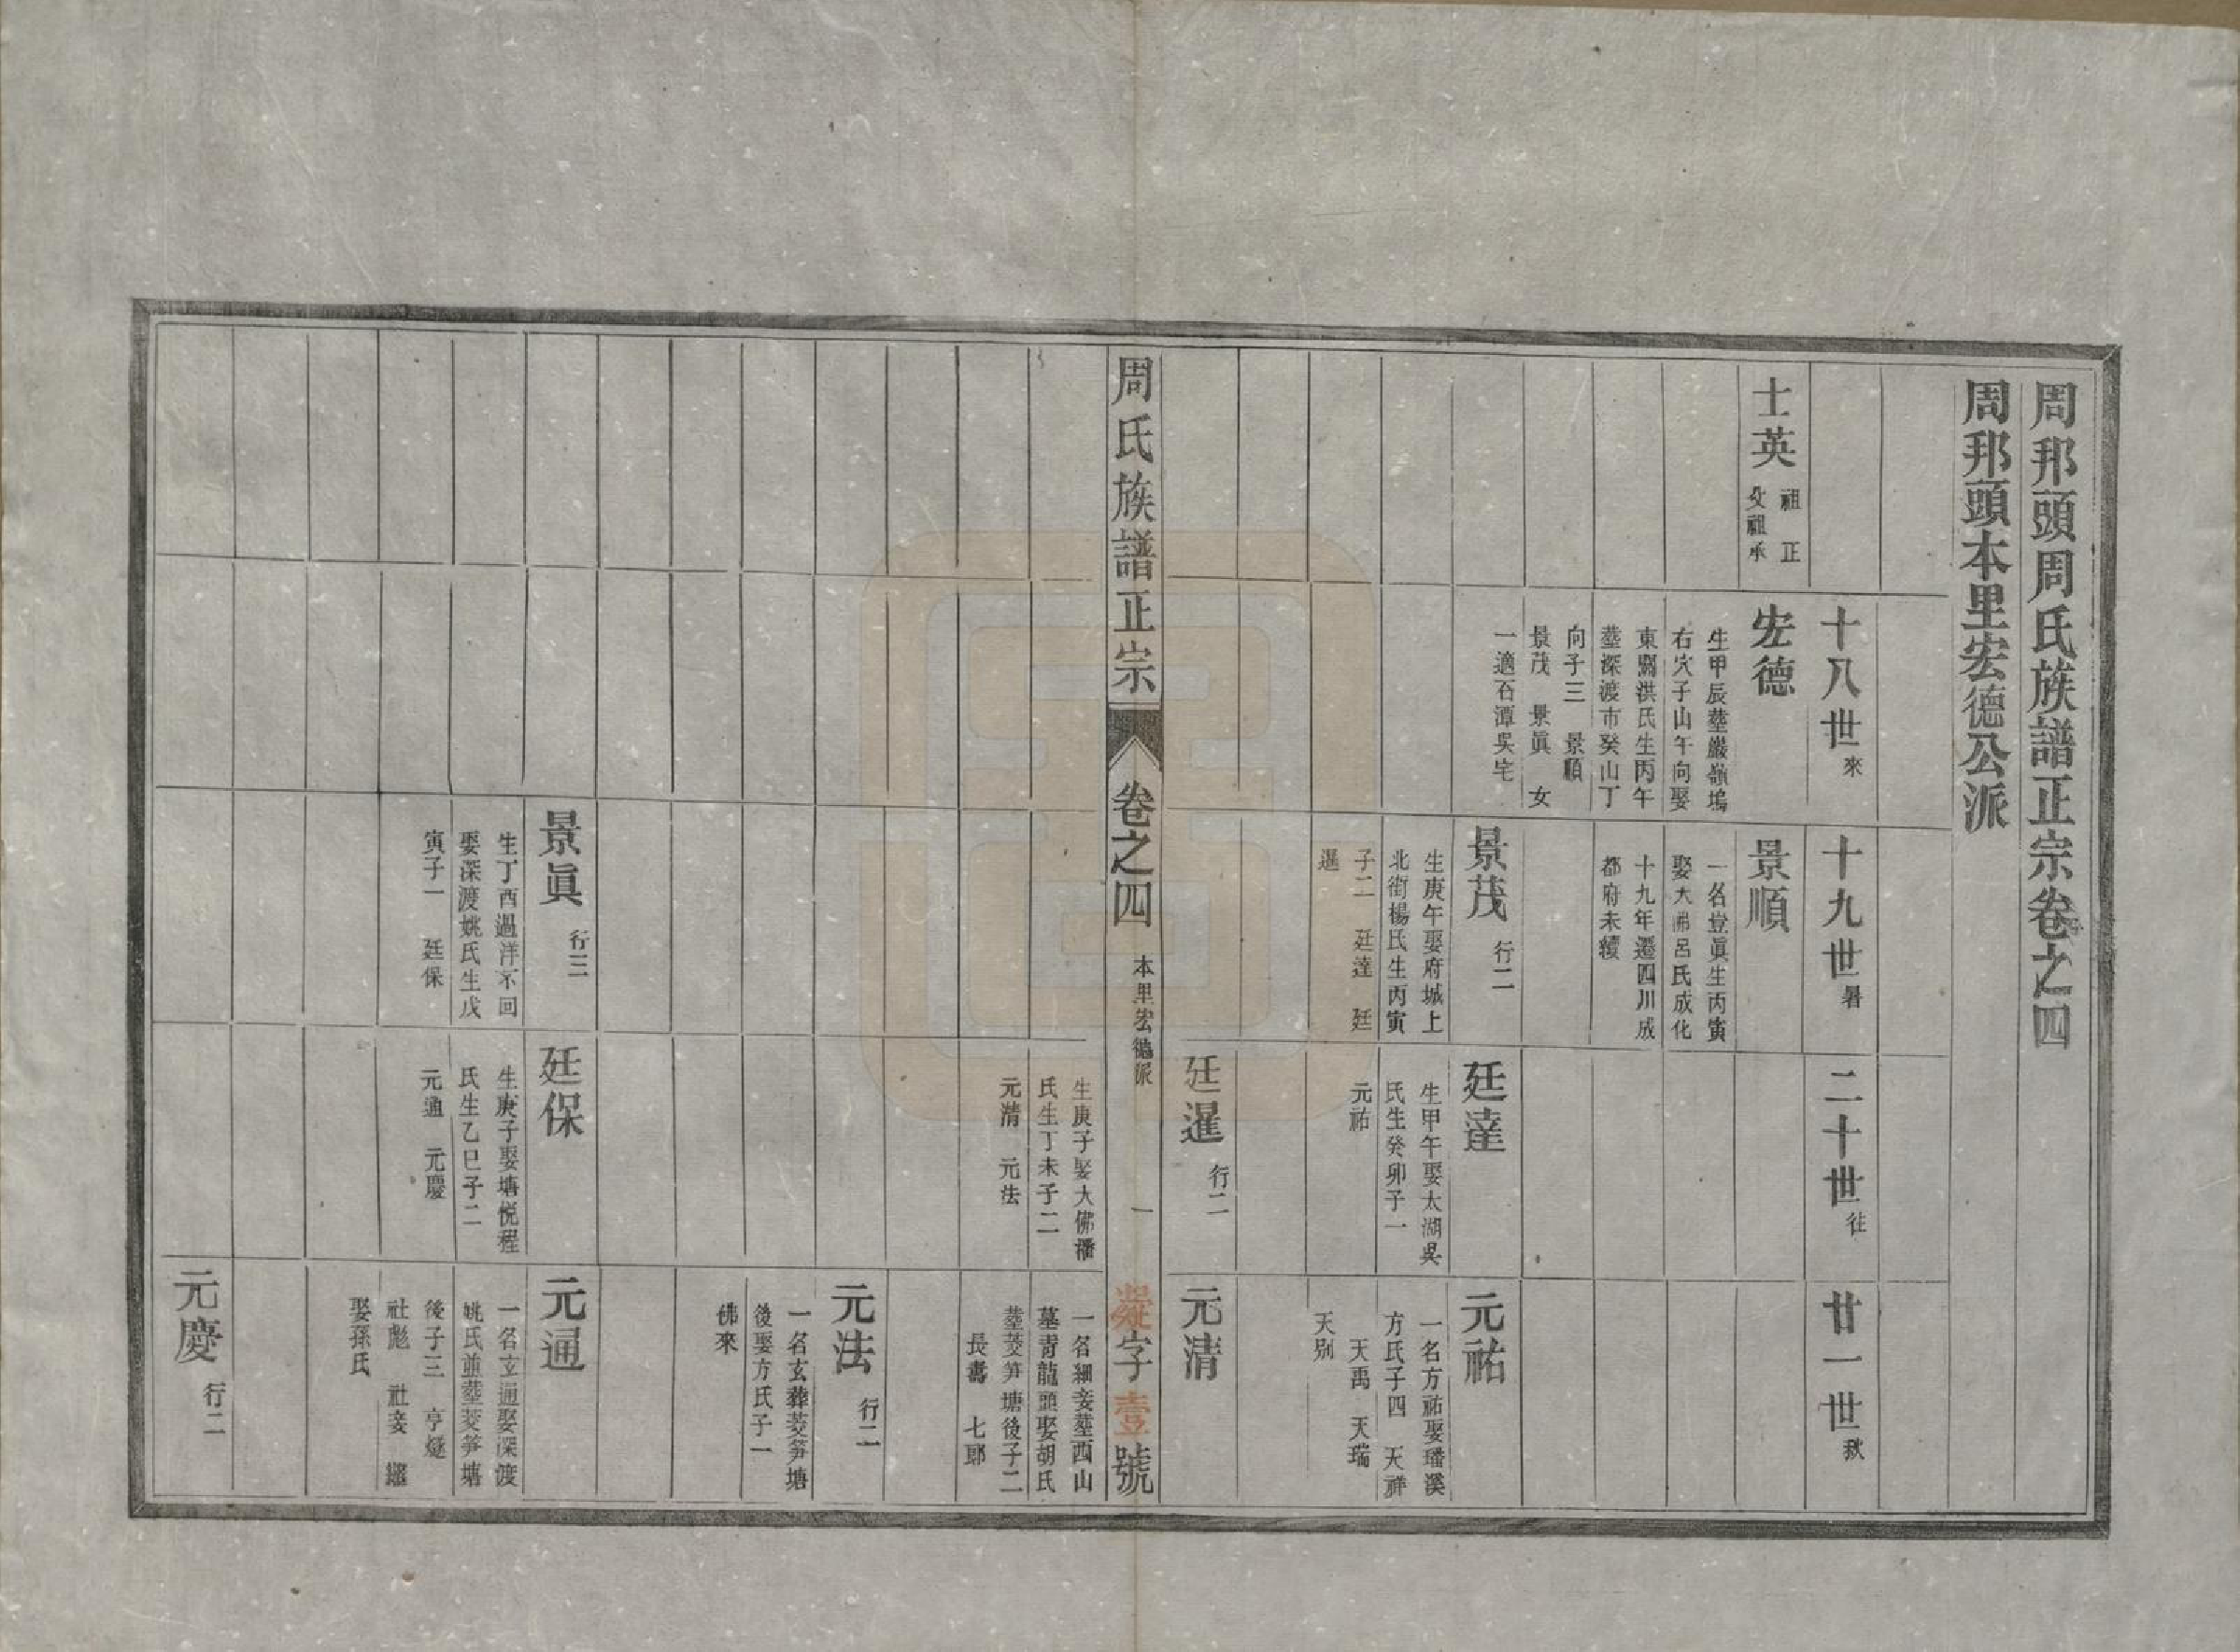 周邦頭周氏族譜正宗卷之四
周邦頭本里宏德公派
十八世來
十九世暑
二十世往
廿一世秋
士英
祖正
父祖承
宏德
生甲辰塟巖嶺塢
右穴子山午向娶
東關洪氏生丙午
塟深渡市癸山丁
向子三　景順
景茂　景眞　女
一適石潭吳宅
景順
一名登眞生丙寅
娶大佛呂氏成化
十九年遷四川成
都府未續
景茂行二
生庚午娶府城上
北街楊氏生丙寅
子二　廷達　廷
暹
廷達
生甲午娶太湖吳
氏生癸卯子一
元祐
元祐
一名方祐娶璠溪
方氏子四　天祥
天禹　天瑞
天别
廷暹行二
元清
周氏族譜正宗
卷之四
本里宏德派
一
字壹號
生庚子娶大佛潘
氏生丁未子二
元清　元法
一名細妾塟西山
墓青龍頭娶胡氏
塟茭笋塘後子二
長壽　七郎
元法行二
一名玄葬茭笋塘
後娶方氏子一
佛來
景眞行三
生丁酉過洋不回
娶深渡姚氏生戊
寅子一　廷保
廷保
生庚子娶塘悦程
氏生乙巳子二
元通　元慶
元通
一名立通娶深渡
姚氏並塟茭笋塘
後子三　亨燧
社彪　社妾　繼
娶孫氏
元慶行二